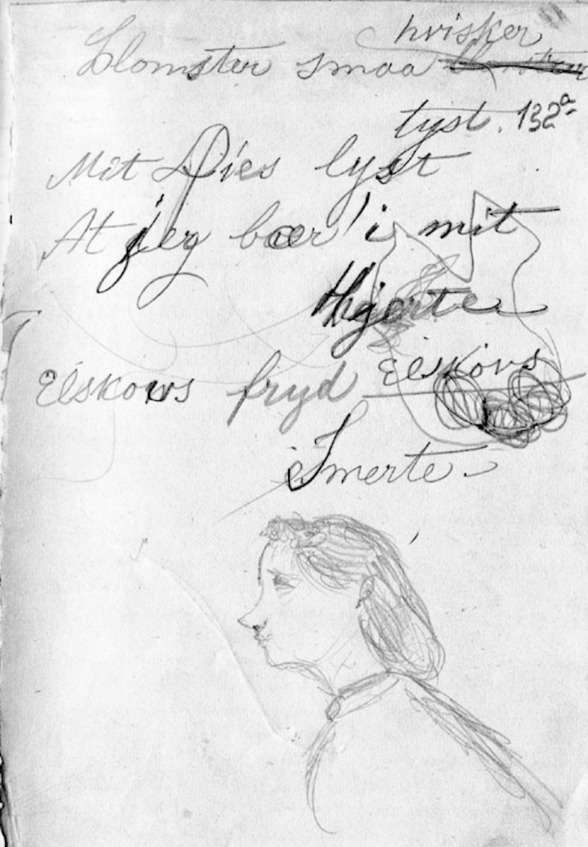 hvisker
blomster smaa
tyst. 132a
Mit Øies lyst
At jeg bær i mit
Hjerte
Elskovs fryd Elskovs
Smerte.